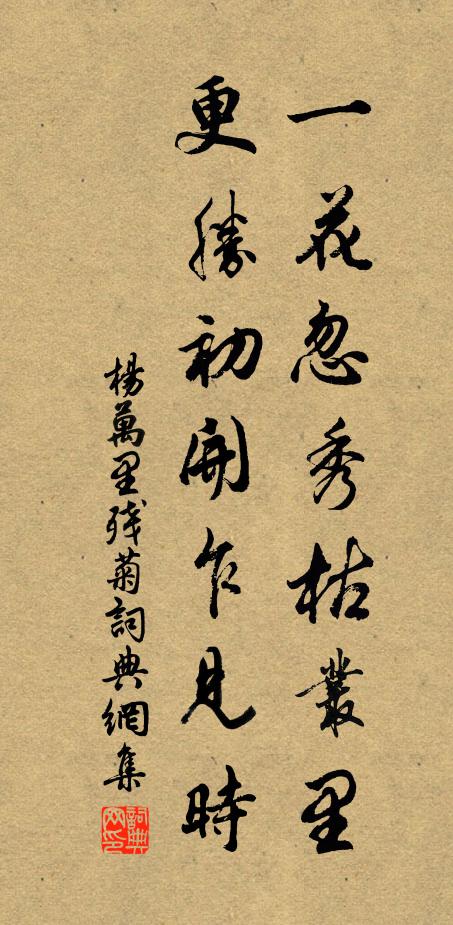 一花忽秀枯叢里
更勝初開乍見時
楊萬里殘菊詞典網集
詞典網印